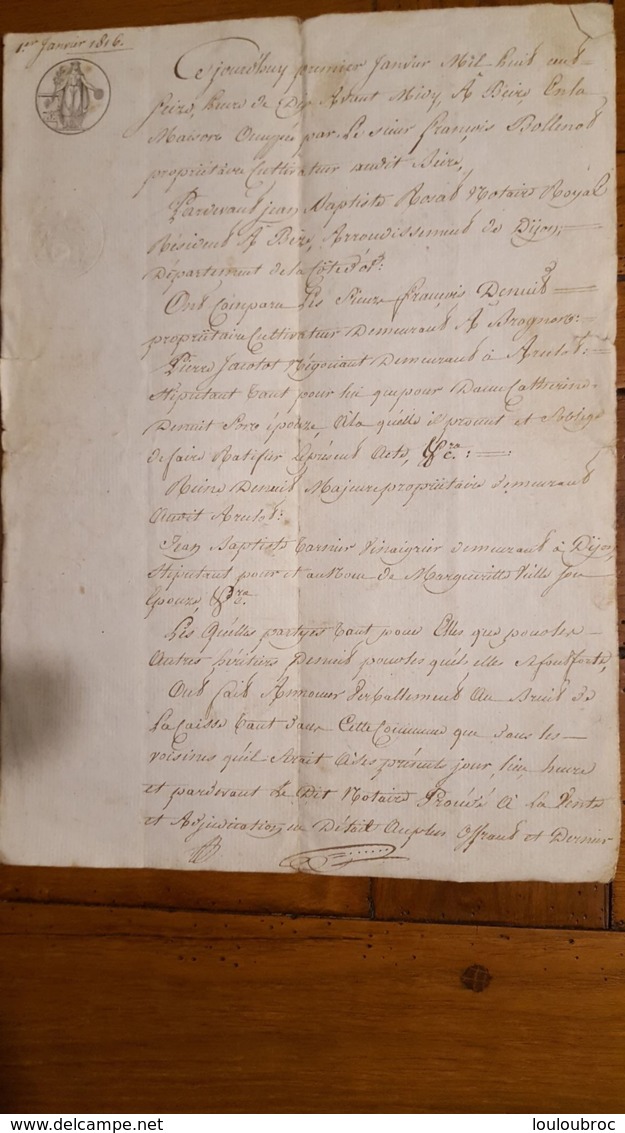 1.er Janvier 1816.
Cejourd'huy premier Janvier Mil huit cent
seize, heure de Dix Avant Midy, A Beire En la
Maison Occupée par Le sieur françois Bollenot
propriétaire Cultivateur audit Beire,
Pardevant Jean Baptiste Rosat Notaire Royal
Résident A Beire, Arrondissement de Dijon,
Département de la Côte d'or:
Ont Comparu Les Sieurs françois Denuit
propriétaire Cultivateur Demeurant A Brognon:
Pierre Jacotot Négociant Demeurant à Arcelot:
Stipulant tant pour lui que pour Dame Catherine
Denuit Son épouze, A la quelle il promet et S'oblige
de faire Ratifier Le présent Acte, &c.ra:
Reine Denuit Majeure propriétaire demeurant
Audit Arcelot:
Jean Baptiste Garnier Vinaigrier demeurant à Dijon,
Stipulant pour et au Nom de Margueritte Ville Son
épouze, &c.ra
Les Quelles partyes tant pour Elles que pour les
Autres héritiers Denuit pour les quels elles se font forte,
Ont fait Annoncer Verballement Au Bruit de
La Caisse tant dans Cette Commune que dans les
voisines qu'il Serait A Ces présents jour, lieu, heure
et pardevant Le Dit Notaire Procédé A La Vente
et Adjudication en Détail Au plus Offrant et Dernier
www.delcampe.net
louloubroc